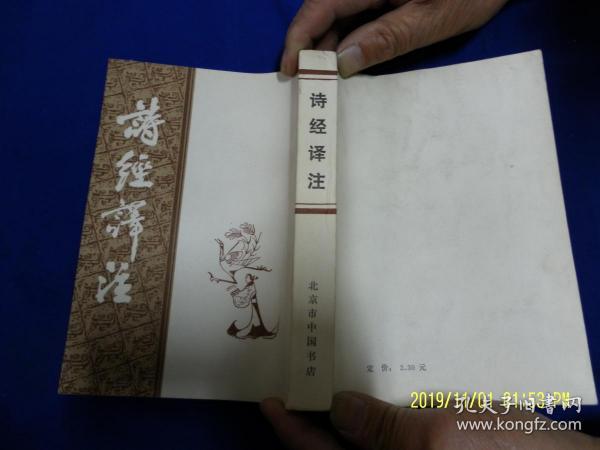 詩經譯注
诗经译注
北京市中国书店
定 价：2.30 元
2019/11/01 21:53 PM
孔夫子旧书网
www.kongfz.com